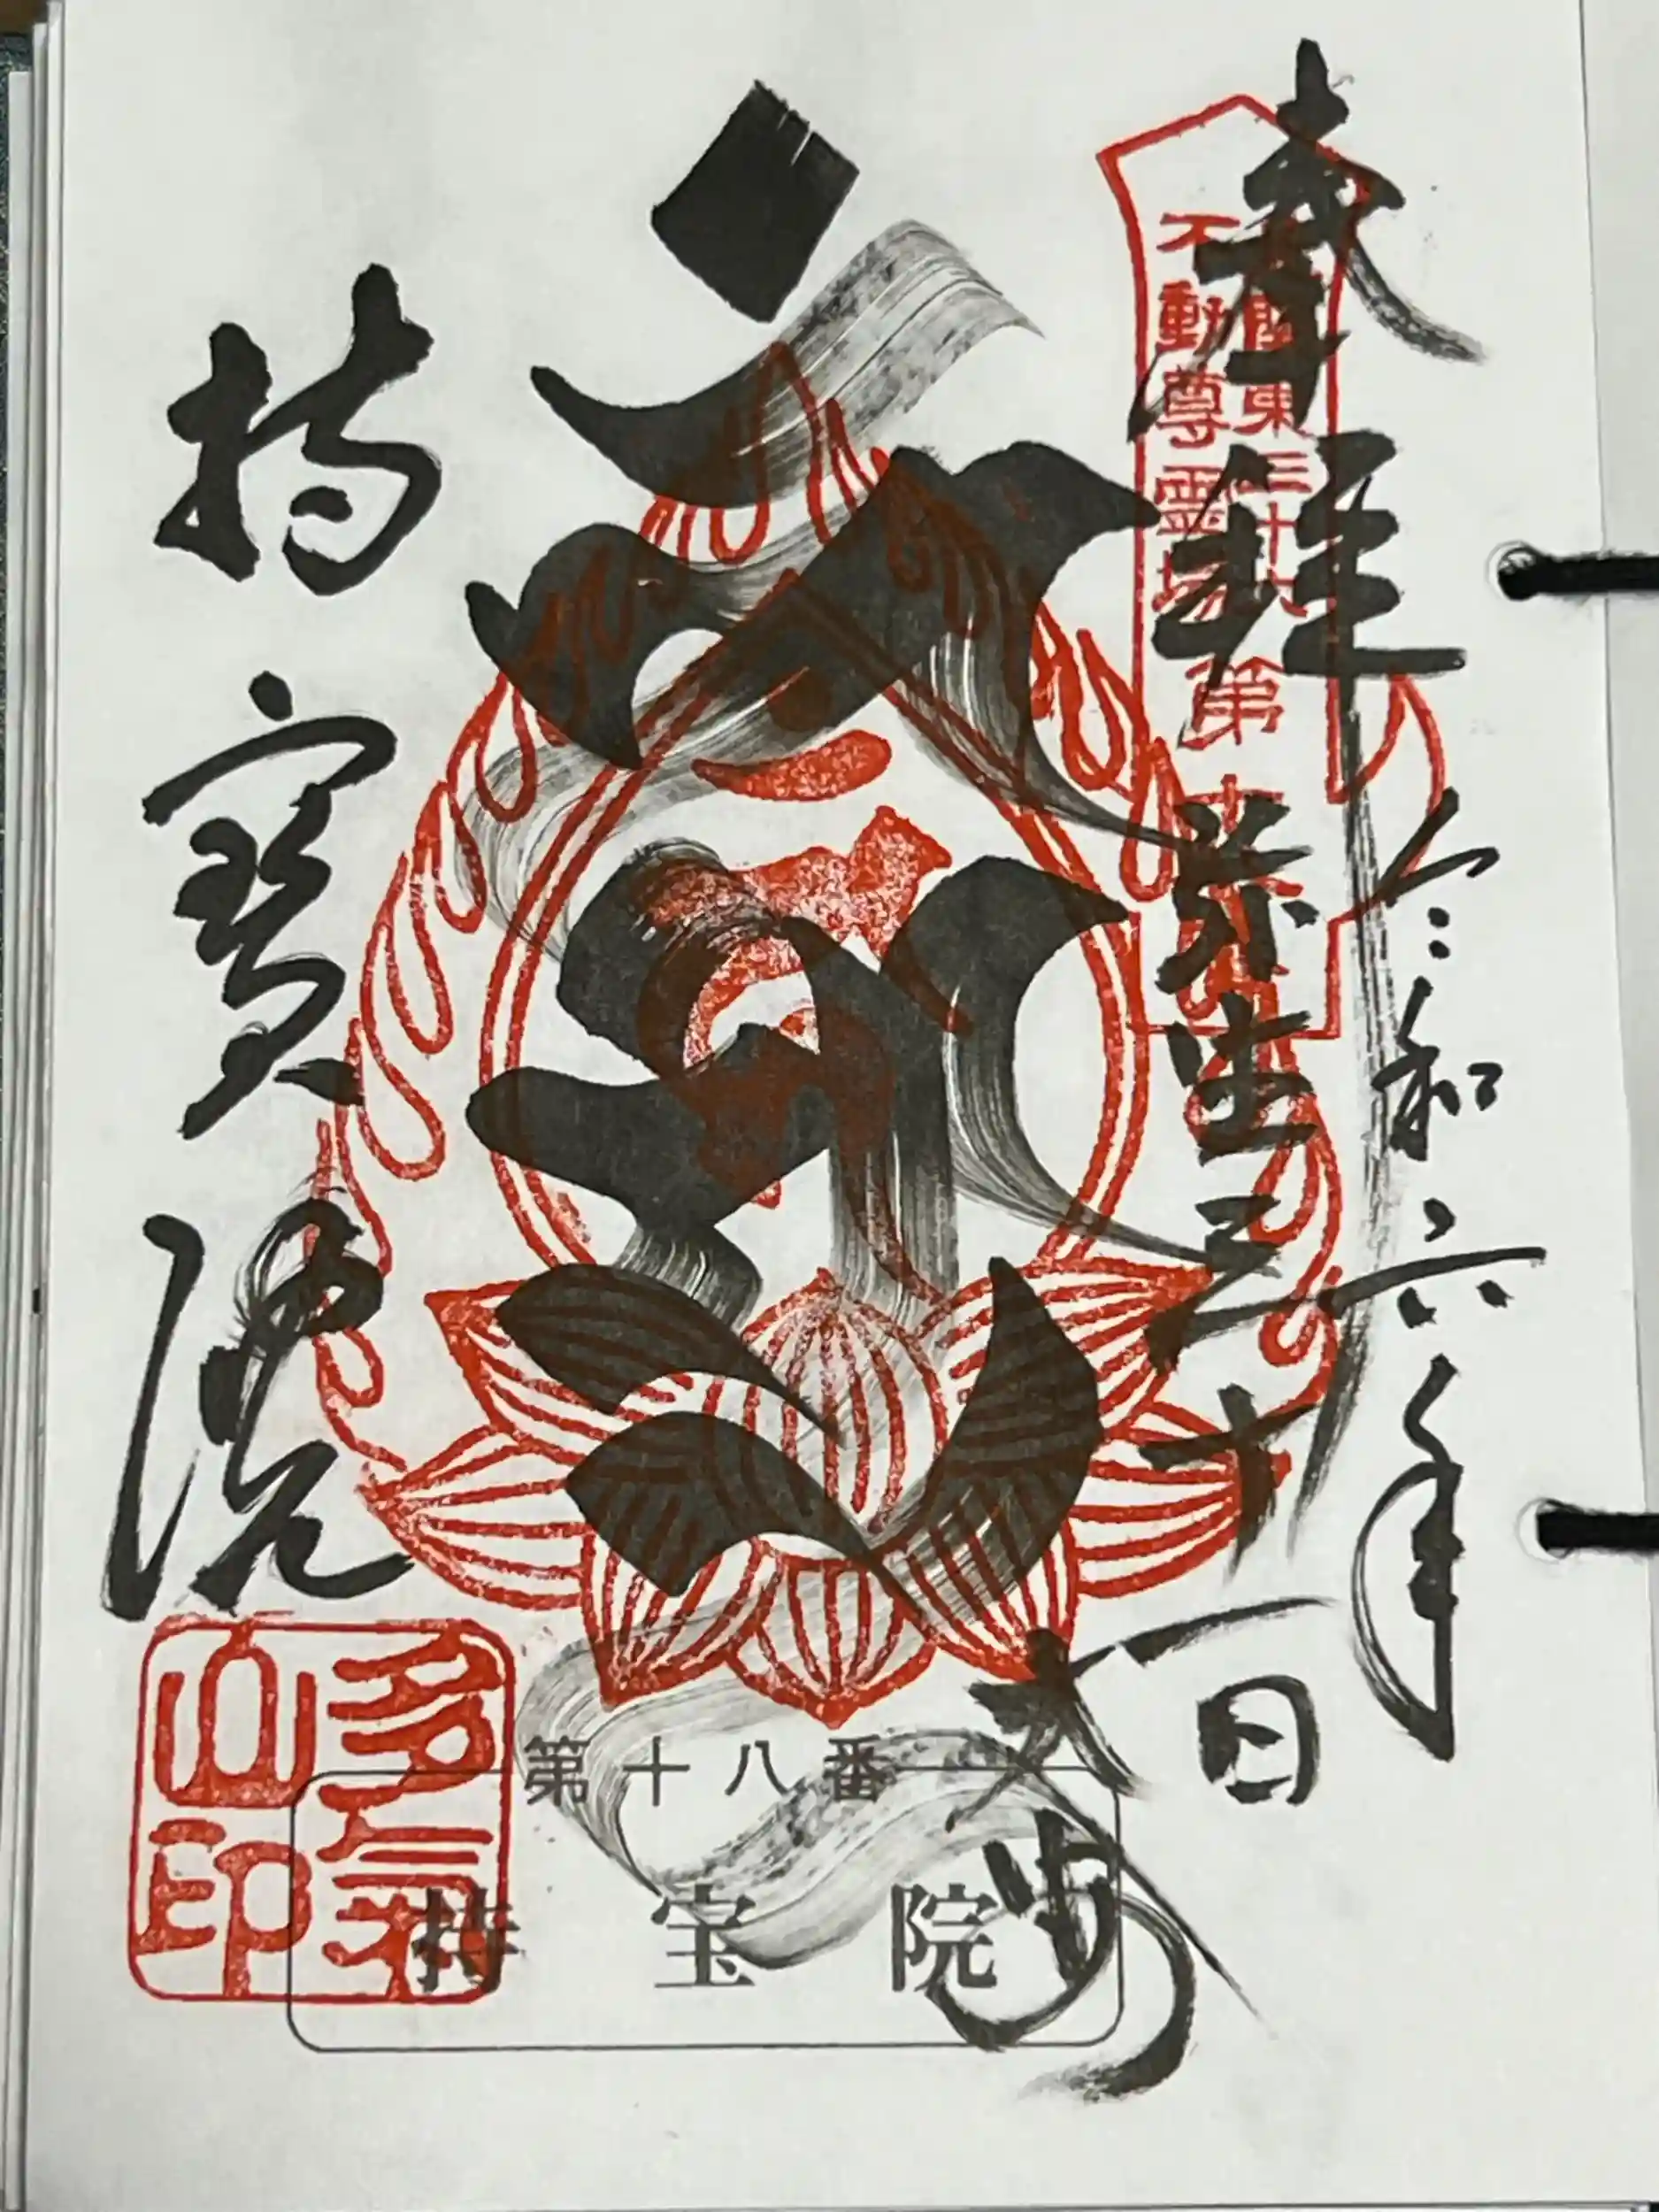 令和六年
奉拝
弥生三十一日
北関東三十六
不動尊霊場
第十八番
持寳院
多氣山印
第十八番
持宝院